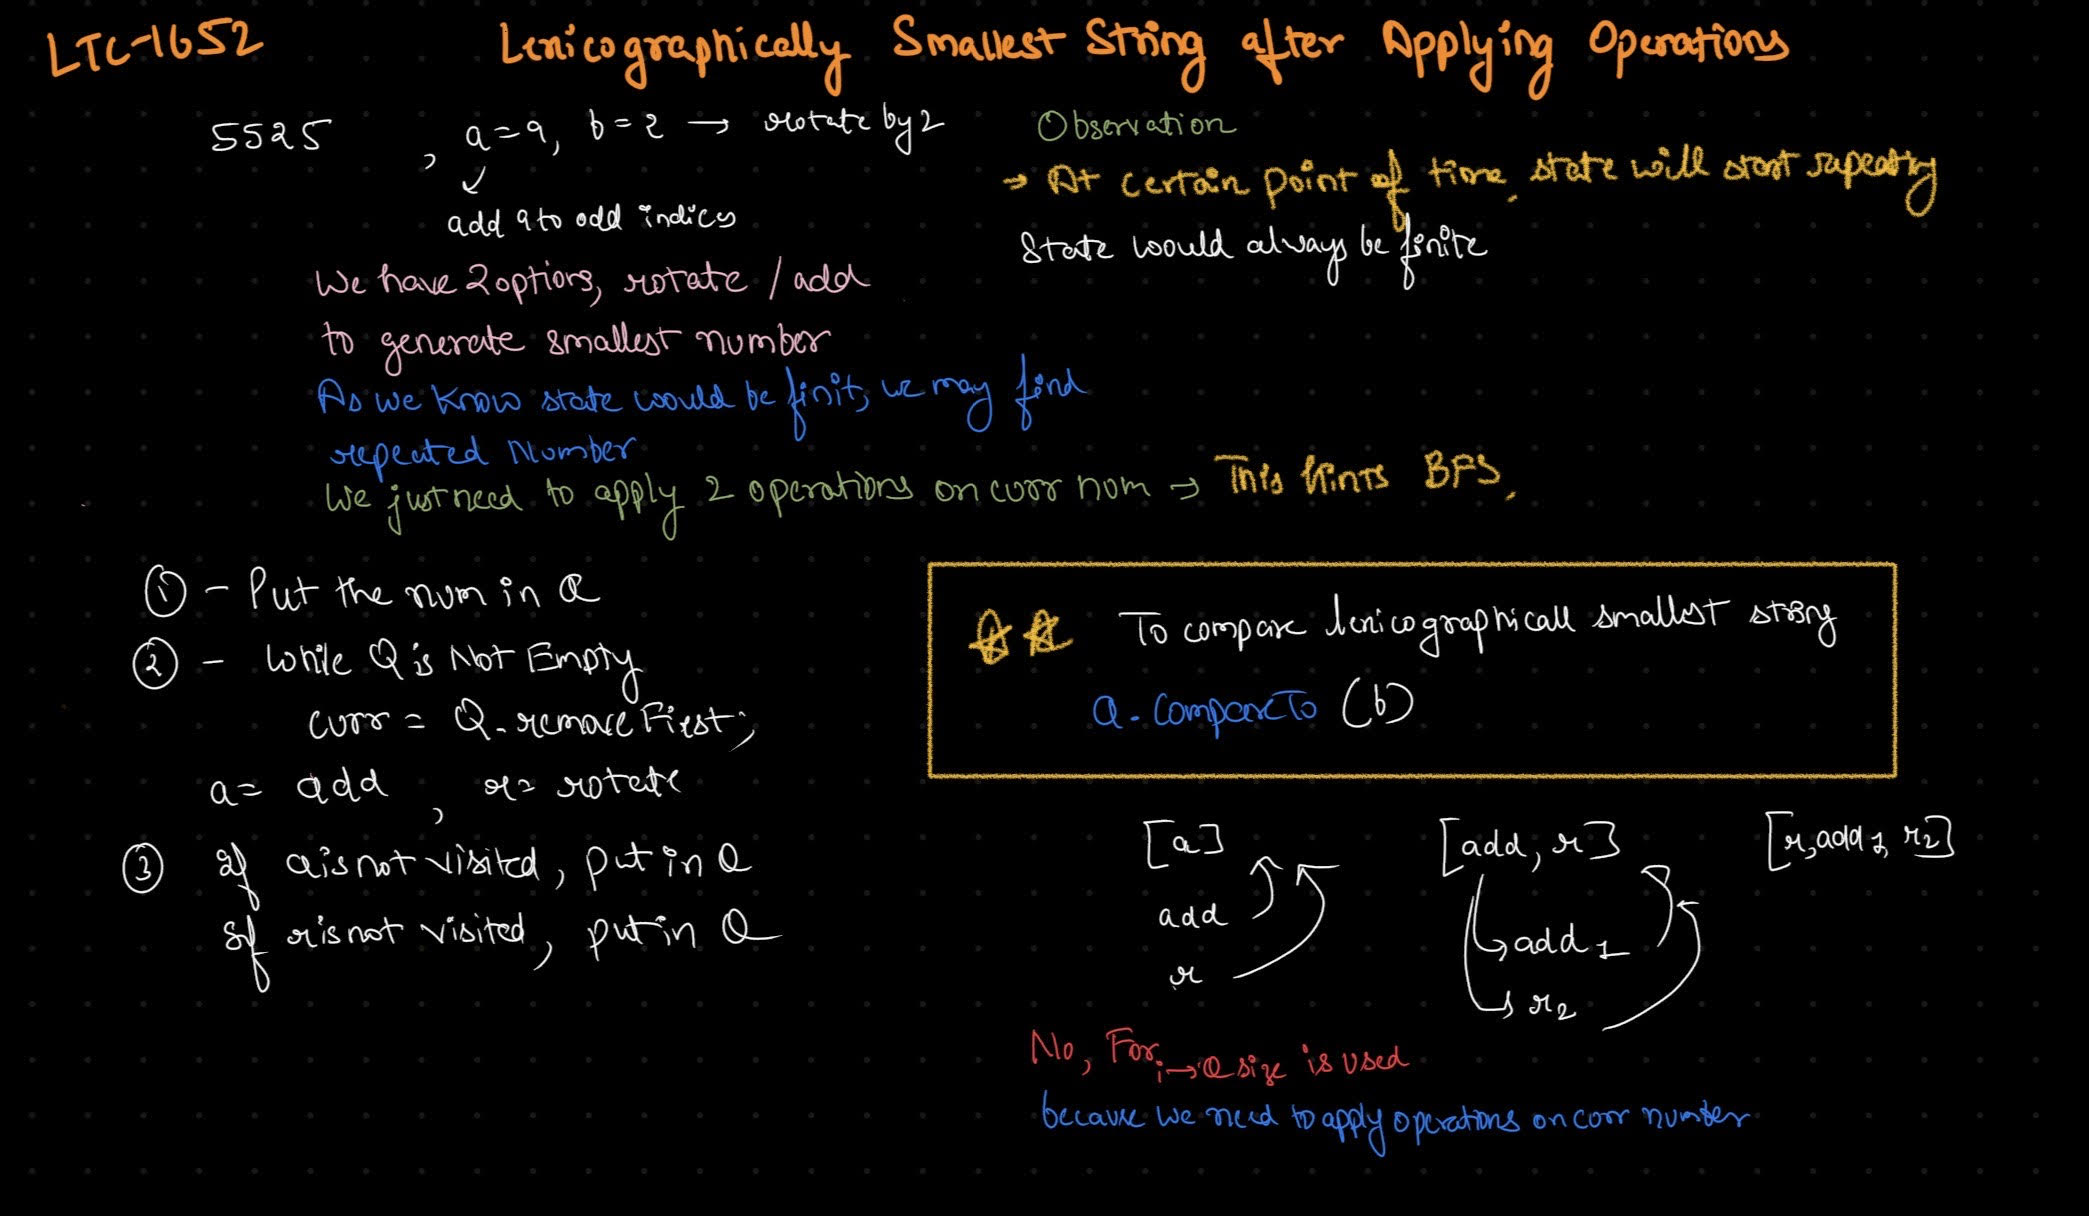 LTC-1652
Lexicographically Smallest String after Applying Operations
5525 , a=9, b=2 → rotate by 2
add 9 to odd indices
We have 2 options, rotate / add
to generate smallest number
As we know state would be finit, we may find
repeated Number
We just need to apply 2 operations on curr num → This hints BFS.
Observation
→ At certain point of time, state will start repeating
State would always be finite
① - Put the num in Q
② - While Q is Not Empty
curr = Q.remove First;
a = add , r = rotate
③ if a is not visited, put in Q
if r is not visited, put in Q
To compare lexicographicall smallest string
a.CompareTo (b)
[a] [add, r] [r, add 1, r2]
add
r
add 1
r2
No, For i→Q size is used
because we need to apply operations on curr number